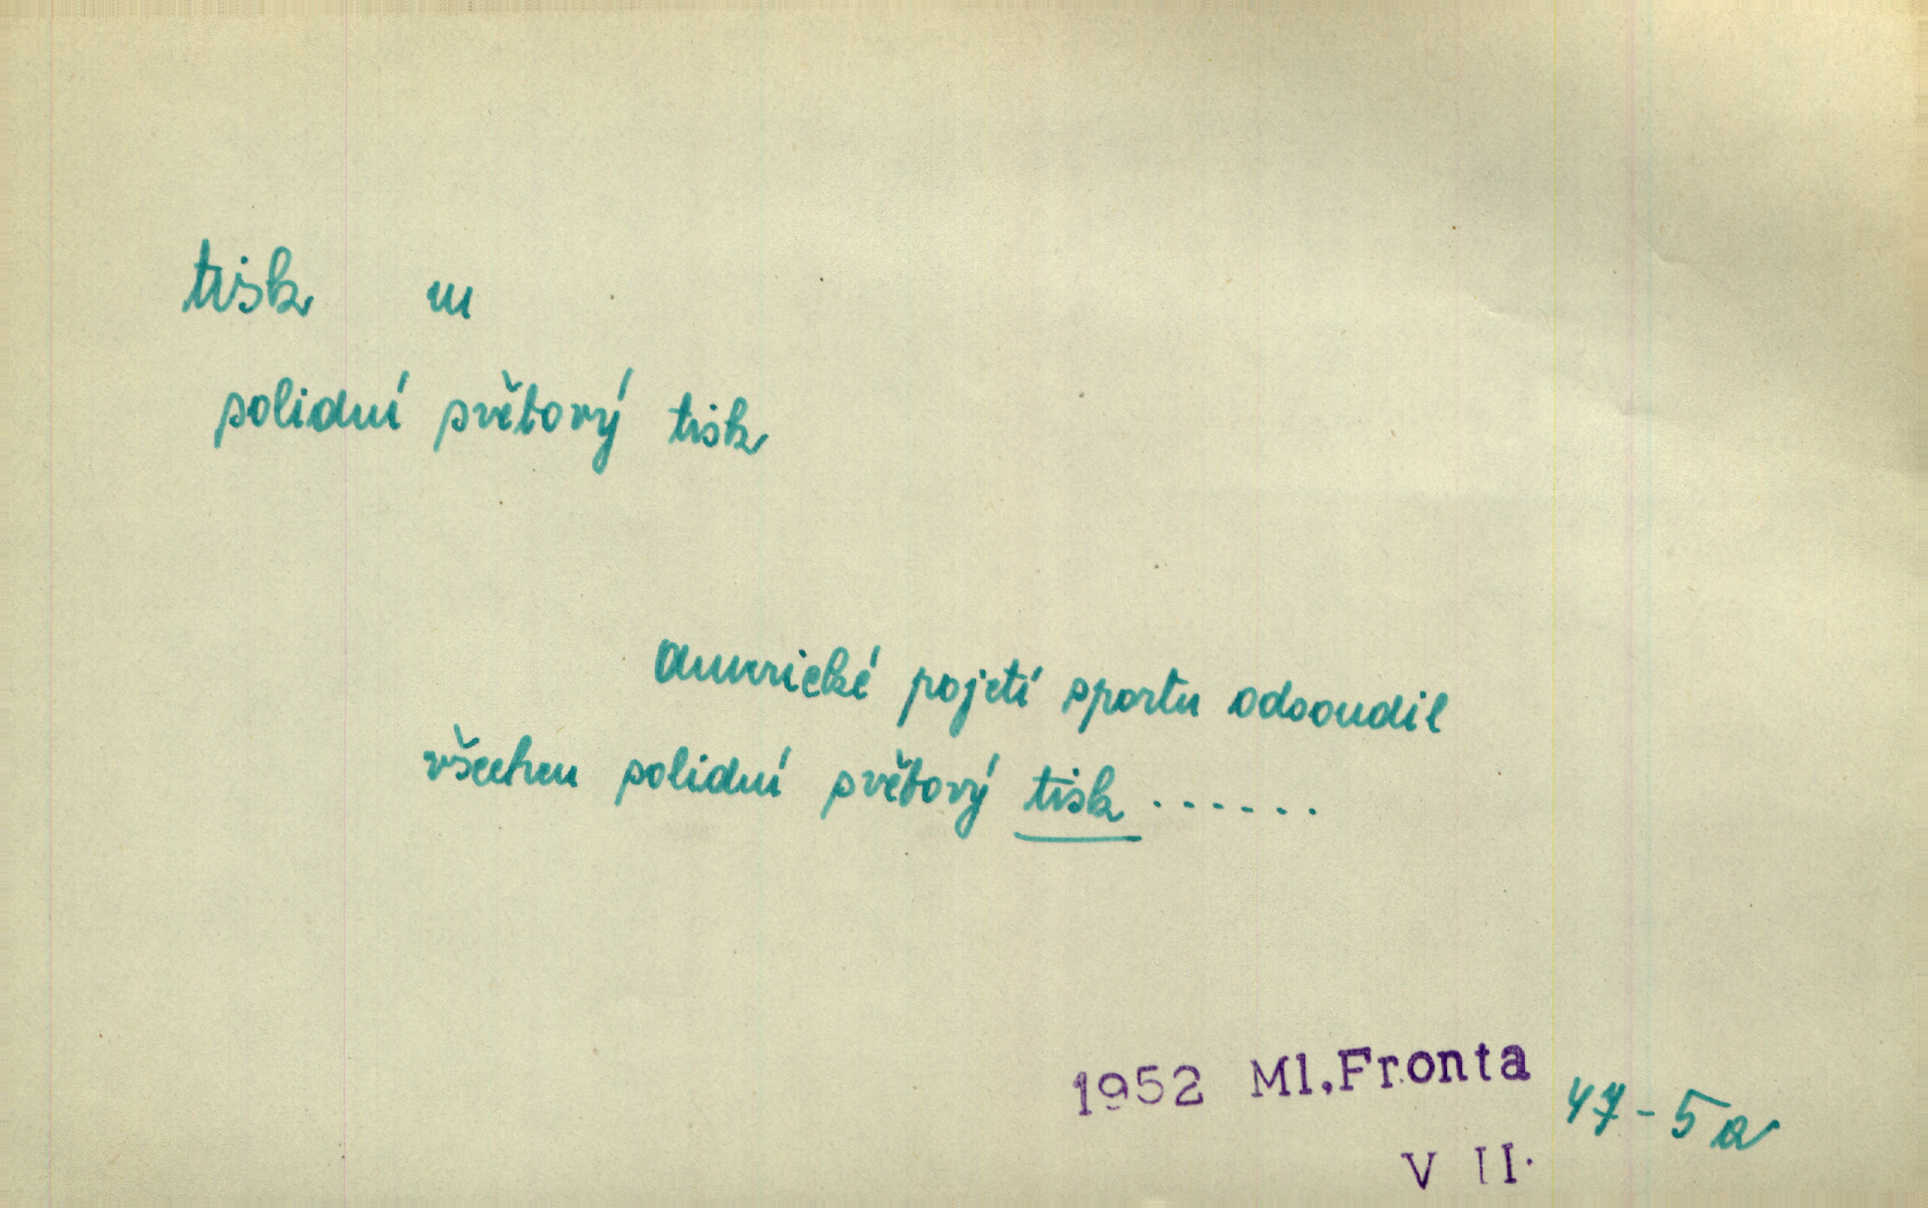 tisk m
solidní světový tisk
Americké pojetí sportu odsoudil
všechen solidní světový tisk ......
1952 Ml.Fronta 47-5a
VII.